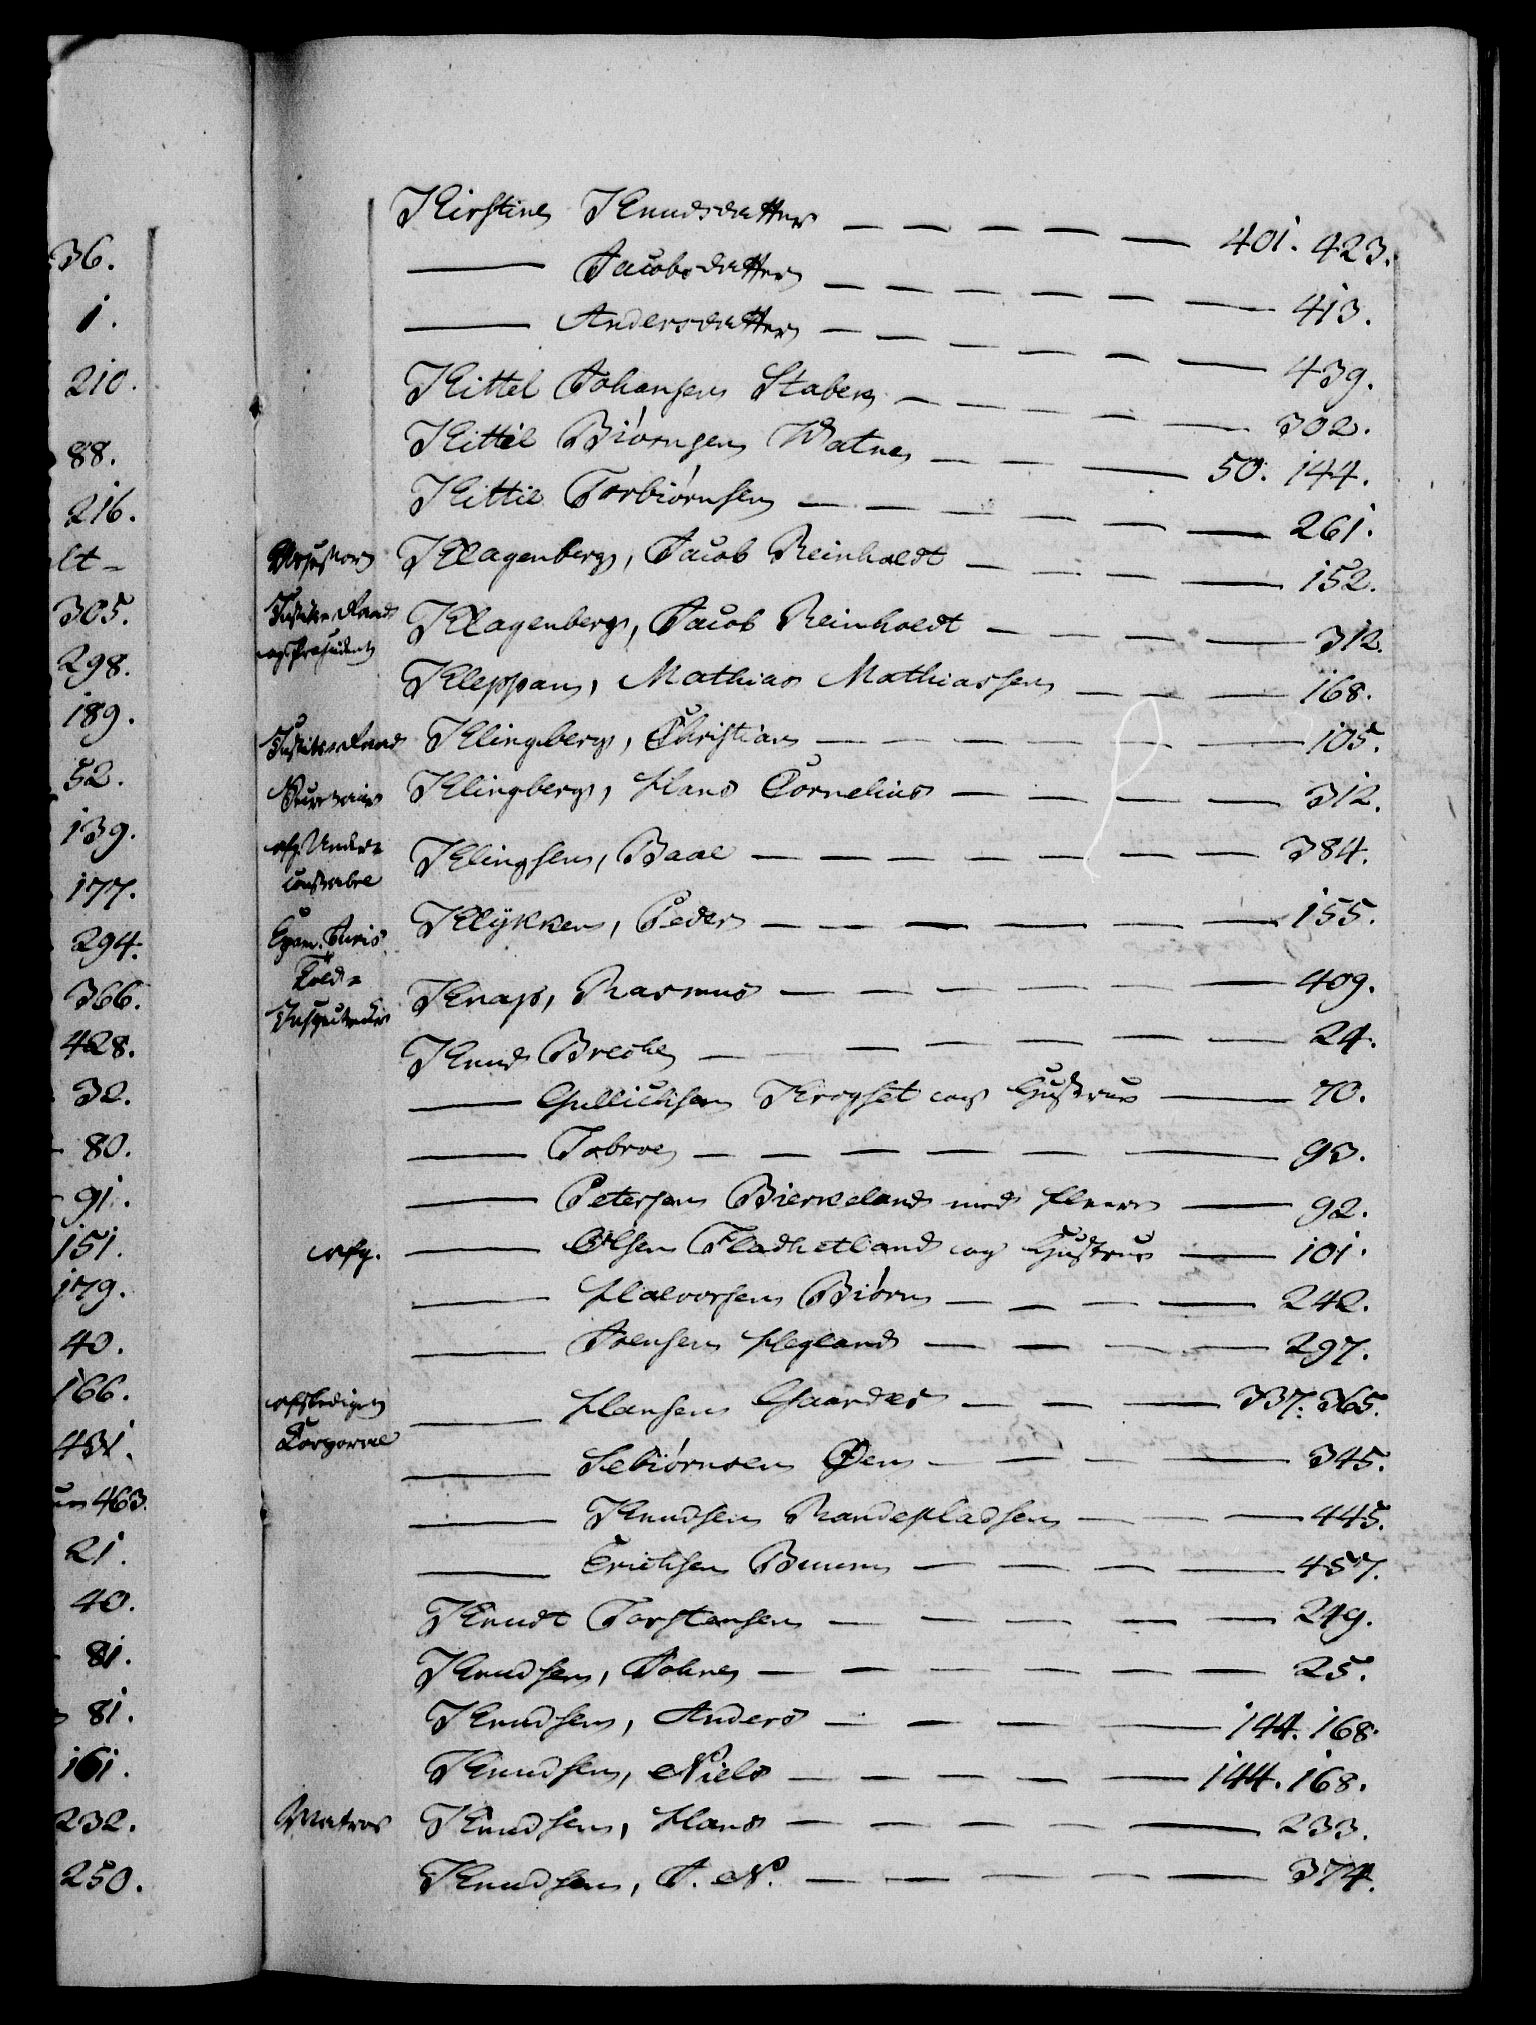 36.
1.
210.
88.
216.
lt-
305.
298.
189.
52.
139.
177.
294.
366.
428.
32.
80.
91.
151.
179.
40.
166.
431.
463.
21.
40.
81.
81.
161.
232.
250.
Kirstine Knudsdatter — — — — — 401. 423.
— Jacobsdatter — — — — — — 413.
— Andersdatter — — — — — — 439.
Kittel Johansen Staben — — — — — 302.
Kittil Biørnsen Watne — — — 50. 144.
Kittil Torbiørnsen — — — — — 261.
Assessor Klagenberg, Jacob Reinholdt — — — — 152.
Justits-Raad
og Præsident Klagenberg, Jacob Reinholdt — — — — 312.
Kleppan, Mathias Mathiassen — — — 168.
Justits-Raad Klingberg, Christian — — — — — — 105.
Klingberg, Hans Cornelius — — — — 312.
afg. Under-
Constabel Klingsen, Baal — — — — — — — 384.
Exam. Juris Klykken, Peder — — — — — — 155.
Told-
Inspecteur Knap, Rasmus — — — — — — 409.
Knud Breche — — — — — — 24.
— Gullichsen Krogset og Hustrue — 70.
— Tobroe — — — — — — — 93.
— Petersen Bierkeland med fleere — 92.
afg. — Olsen Fladhetland og Hustrue — 101.
— Halvorsen Biørn — — — — 242.
— Joensen Hegland — — — — 297.
afskediget
Corporal — Hansen Gaarder — — — 337. 365.
— Sebiørnsen Øen — — — — 345.
— Knudsen Randepladsen — — — 445.
— Erichsen Buuen — — — — 457.
Knudt Torstensen — — — — — 249.
Knudsen, Johne — — — — — — 25.
Knudsen, Anders — — — — — 144. 168.
Knudsen, Niels — — — — — 144. 168.
Matros Knudsen, Hans — — — — — 233.
Knudsen, J. N. — — — — — — 374.